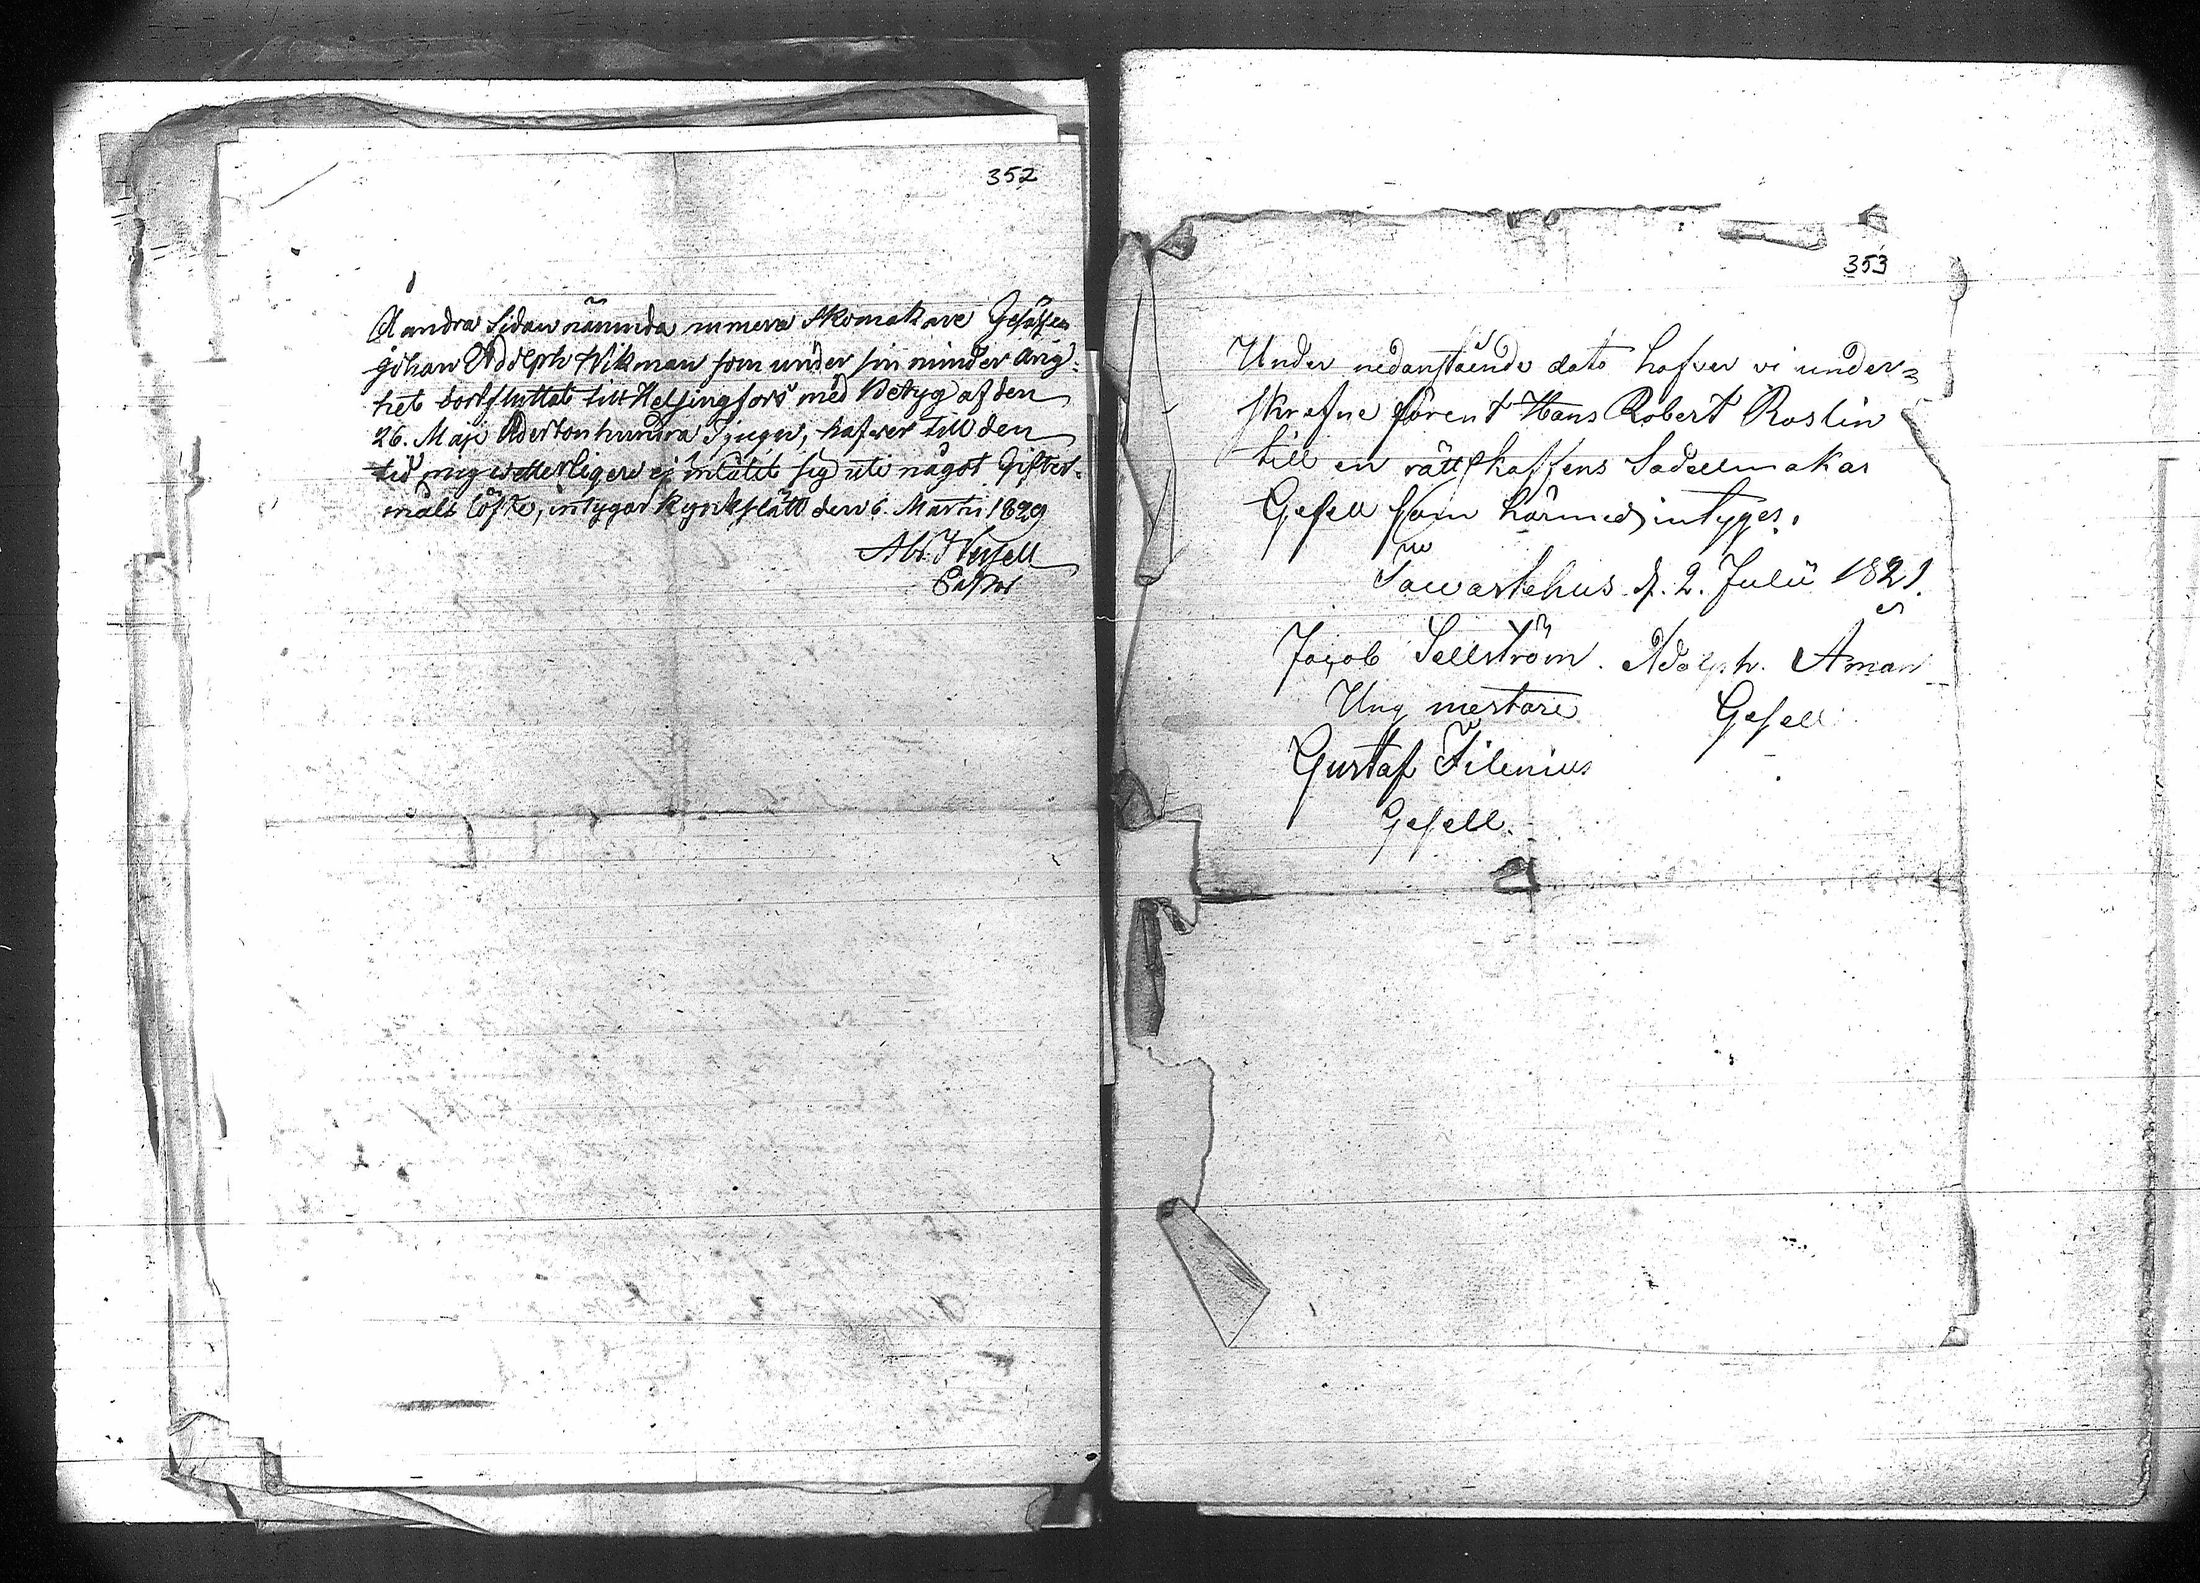 352
Å andra Sidan nämnda numera Skomakare Gesällen
Johan Adolph Wikman som under sin minder årig=
het bortfluttat till Helsingfors med Betyg af den
26. Maji Adertonhundra Tjugu, hafwer till den
tid mig wetterligen ej inlåtit sig uti något Gifter=
måls löfte, intygar Kyrkslätt den 6. Martii 1829
Pastor
353
Under nedanstående dato hafver vi under=
skrefne förent Hans Robert Roslin
till en rättskaffens Sadellmakar
Gesell som härmed intyges.
Tawastehus d. 2. Julii 1821.
Jacob Sellström. Adolph. Åman
Ung mestare Gesell
Gustaf Filenius
Gesell.